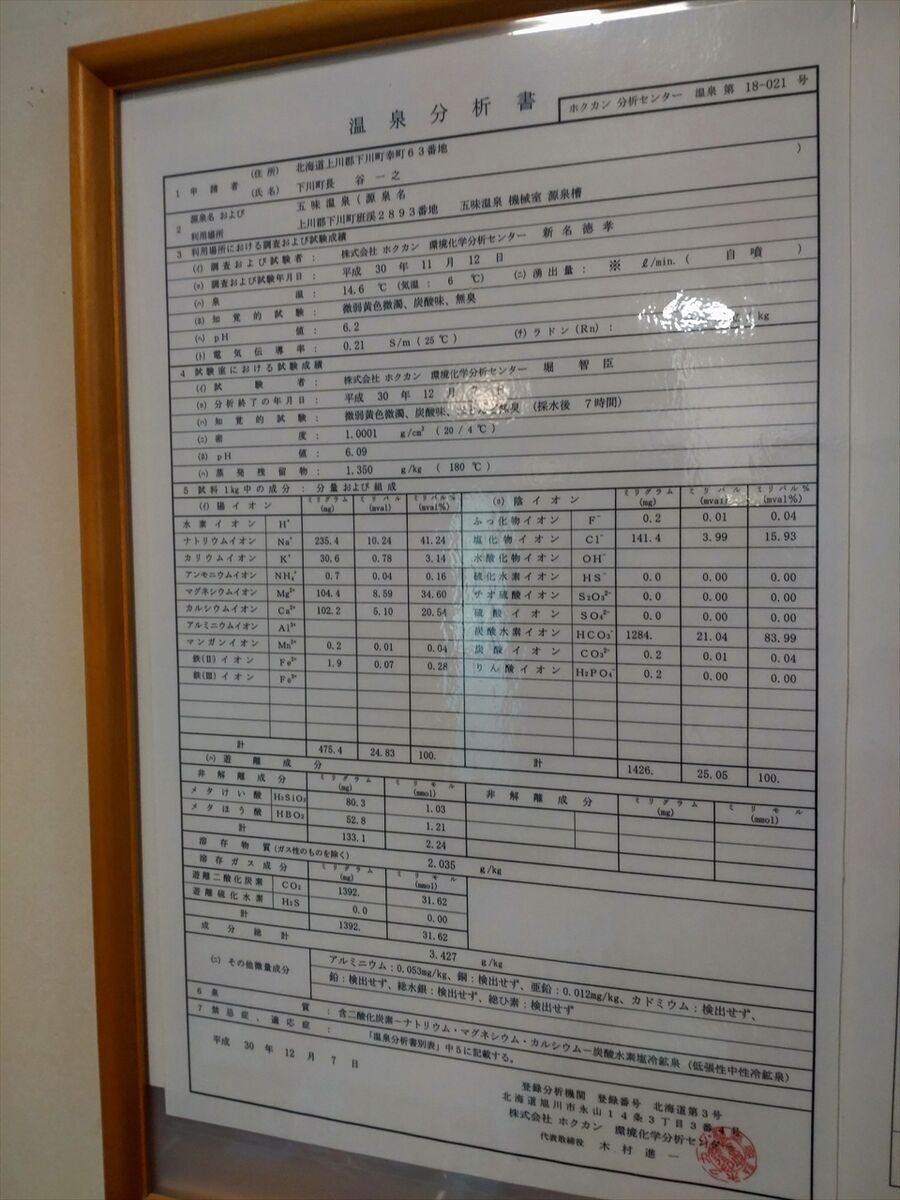 温泉分析書
ホクカン 分析センター 温泉 第 18-021 号
1 申請者 (住所) 北海道上川郡下川町幸町63番地
(氏名) 下川町長 谷 一之
2 源泉名 および 五味温泉 (源泉名 )
利用場所 上川郡下川町班渓2893番地 五味温泉 機械室 源泉槽
3 利用場所における調査および試験成績
(イ) 調査および試験者 : 株式会社 ホクカン 環境化学分析センター 新名 徳孝
(ロ) 調査および試験年月日 : 平成 30 年 11 月 12 日
(ハ) 泉温 : 14.6 ℃ (気温 : 6 ℃) (ニ) 湧出量 : ※ ℓ/min. ( 自噴 )
(ホ) 知覚的試験 : 微弱黄色微濁、炭酸味、無臭
(ヘ) pH値 : 6.2
(ト) 電気伝導率 : 0.21 S/m (25℃) (チ) ラドン(Rn) : kg
4 試験室における試験成績
(イ) 試験者 : 株式会社 ホクカン 環境化学分析センター 堀 智臣
(ロ) 分析終了の年月日 : 平成 30 年 12 月 7 日
(ハ) 知覚的試験 : 微弱黄色微濁、炭酸味、臭 (採水後 7時間)
(ニ) 密度 : 1.0001 g/cm³ (20/4℃)
(ホ) pH値 : 6.09
(ヘ) 蒸発残留物 : 1.350 g/kg (180 ℃)
5 試料1kg中の成分 : 分量および組成
(イ) 陽イオン ミリグラム(mg) ミリバル(mval) ミリバル%(mval%) (ロ) 陰イオン ミリグラム(mg) ミリバル(mval) ミリバル%(mval%)
水素イオン H⁺ ふっ化物イオン F⁻ 0.2 0.01 0.04
ナトリウムイオン Na⁺ 235.4 10.24 41.24 塩化物イオン Cl⁻ 141.4 3.99 15.93
カリウムイオン K⁺ 30.6 0.78 3.14 水酸化物イオン OH⁻
アンモニウムイオン NH₄⁺ 0.7 0.04 0.16 硫化水素イオン HS⁻ 0.0 0.00 0.00
マグネシウムイオン Mg²⁺ 104.4 8.59 34.60 チオ硫酸イオン S₂O₃²⁻ 0.0 0.00 0.00
カルシウムイオン Ca²⁺ 102.2 5.10 20.54 硫酸イオン SO₄²⁻ 0.0 0.00 0.00
アルミニウムイオン Al³⁺ 炭酸水素イオン HCO₃⁻ 1284. 21.04 83.99
マンガンイオン Mn²⁺ 0.2 0.01 0.04 炭酸イオン CO₃²⁻ 0.2 0.01 0.04
鉄(Ⅱ)イオン Fe²⁺ 1.9 0.07 0.28 りん酸イオン H₂PO₄⁻ 0.2 0.00 0.00
鉄(Ⅲ)イオン Fe³⁺
計 475.4 24.83 100. 計 1426. 25.05 100.
(ハ) 遊離成分
非解離成分 ミリグラム(mg) ミリモル(mmol) 非解離成分 ミリグラム(mg) ミリモル(mmol)
メタけい酸 H₂SiO₃ 80.3 1.03
メタほう酸 HBO₂ 52.8 1.21
計 133.1 2.24
溶存物質(ガス性のものを除く) 2.035 g/kg
溶存ガス成分 ミリグラム(mg) ミリモル(mmol)
遊離二酸化炭素 CO₂ 1392. 31.62
遊離硫化水素 H₂S 0.0 0.00
計 1392. 31.62
成分総計 3.427 g/kg
(ニ) その他微量成分 アルミニウム:0.053mg/kg、銅:検出せず、亜鉛:0.012mg/kg、カドミウム:検出せず、
鉛:検出せず、総水銀:検出せず、総ひ素:検出せず
6 泉質 : 含二酸化炭素-ナトリウム・マグネシウム・カルシウム-炭酸水素塩冷鉱泉 (低張性中性冷鉱泉)
7 禁忌症、適応症 : 「温泉分析書別表」中5に記載する。
平成 30 年 12 月 7 日
登録分析機関 登録番号 北海道第3号
北海道旭川市永山14条3丁目3番4号
株式会社 ホクカン 環境化学分析セン
代表取締役 木村 進一